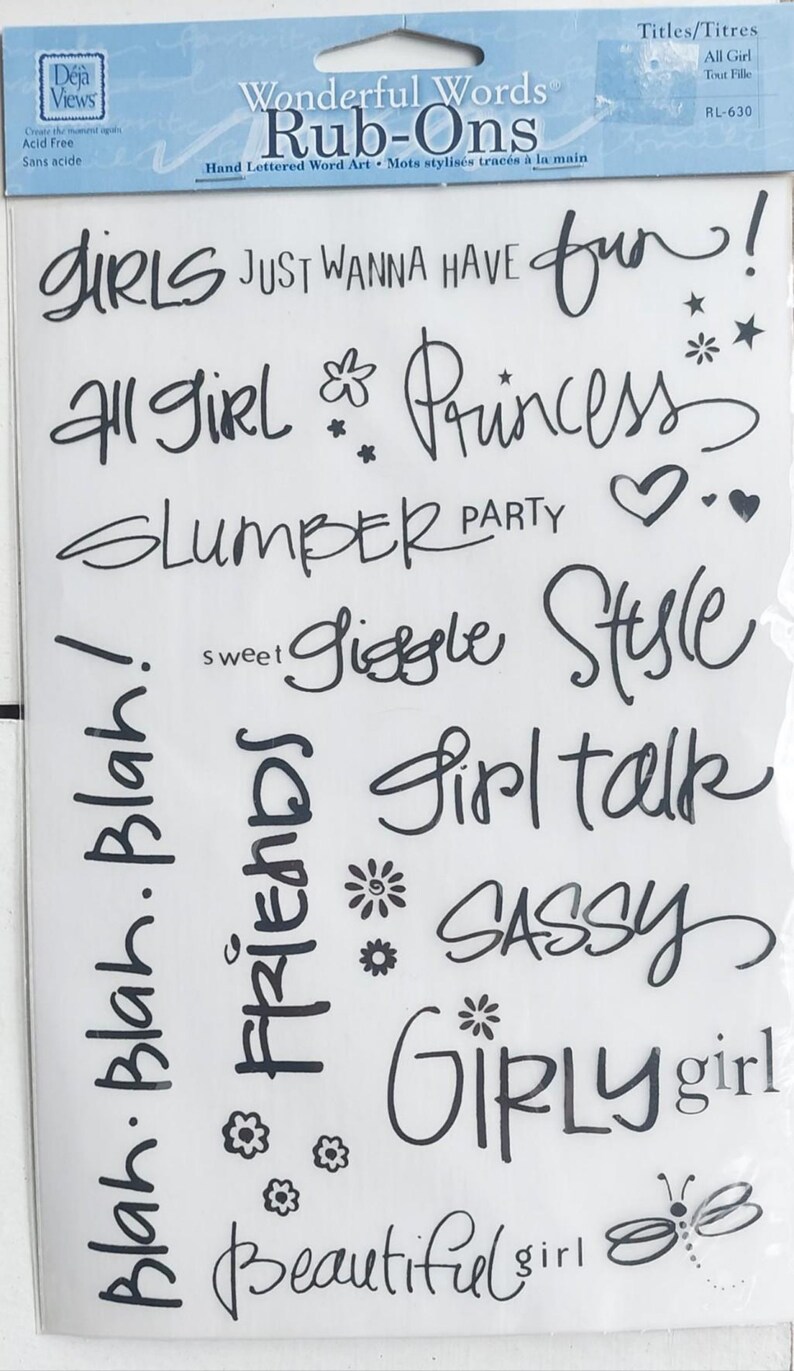 Déjà
Views
Create the moment again
Acid Free
Sans acide
Wonderful Words®
Rub-Ons
Hand Lettered Word Art • Mots stylisés tracés à la main
Titles/Titres
All Girl
Tout Fille
RL-630
GIRLS JUST WANNA HAVE fun!
all girl
Princess
SLUMBER PARTY
sweet giggle
Style
Blah. Blah. Blah!
FRIENDS
girl talk
SASSY
GIRLY girl
Beautiful girl